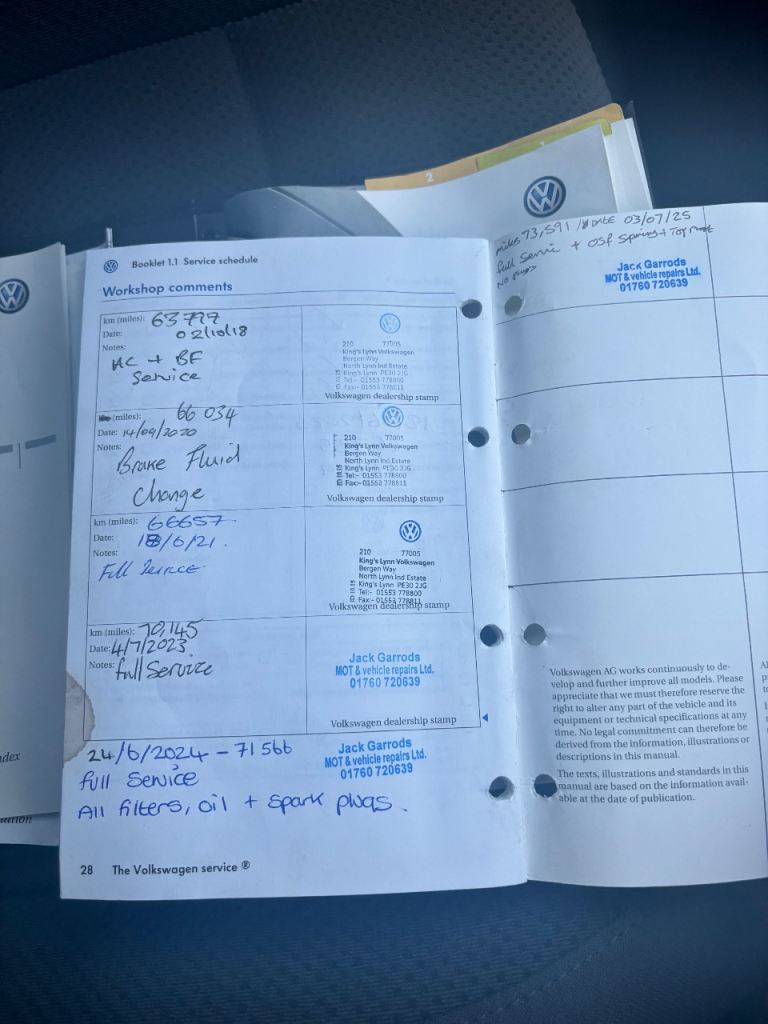 2
1
Booklet 1.1 Service schedule
Workshop comments
km (miles): 63777
Date: 02/10/18
Notes:
AC + BF
Service
210 77005
King's Lynn Volkswagen
Bergen Way
North Lynn Ind Estate
King's Lynn PE30 2JG
Tel:- 01553 778800
Fax:- 01553 778811
Volkswagen dealership stamp
(miles): 66 034
Date: 14/09/2020
Notes:
Brake Fluid
Change
210 77005
King's Lynn Volkswagen
Bergen Way
North Lynn Ind Estate
King's Lynn PE30 2JG
Tel:- 01553 778800
Fax:- 01553 778811
Volkswagen dealership stamp
km (miles): 66657
Date: 18/6/21.
Notes:
Full Service
210 77005
King's Lynn Volkswagen
Bergen Way
North Lynn Ind Estate
King's Lynn PE30 2JG
Tel:- 01553 778800
Fax:- 01553 778811
Volkswagen dealership stamp
km (miles): 70,145
Date: 4/7/2023.
Notes: full Service
Jack Garrods
MOT & vehicle repairs Ltd.
01760 720639
Volkswagen dealership stamp
24/6/2024 - 71566
full Service
All filters, oil + spark plugs.
Jack Garrods
MOT & vehicle repairs Ltd.
01760 720639
28 The Volkswagen service ®
miles 73,591 / DATE 03/07/25
full Servic + OSF Spring + Top
NO plugs
Jack Garrods
MOT & vehicle repairs Ltd.
01760 720639
Volkswagen AG works continuously to de-
velop and further improve all models. Please
appreciate that we must therefore reserve the
right to alter any part of the vehicle and its
equipment or technical specifications at any
time. No legal commitment can therefore be
derived from the information, illustrations or
descriptions in this manual.
The texts, illustrations and standards in this
manual are based on the information avail-
able at the date of publication.
dex